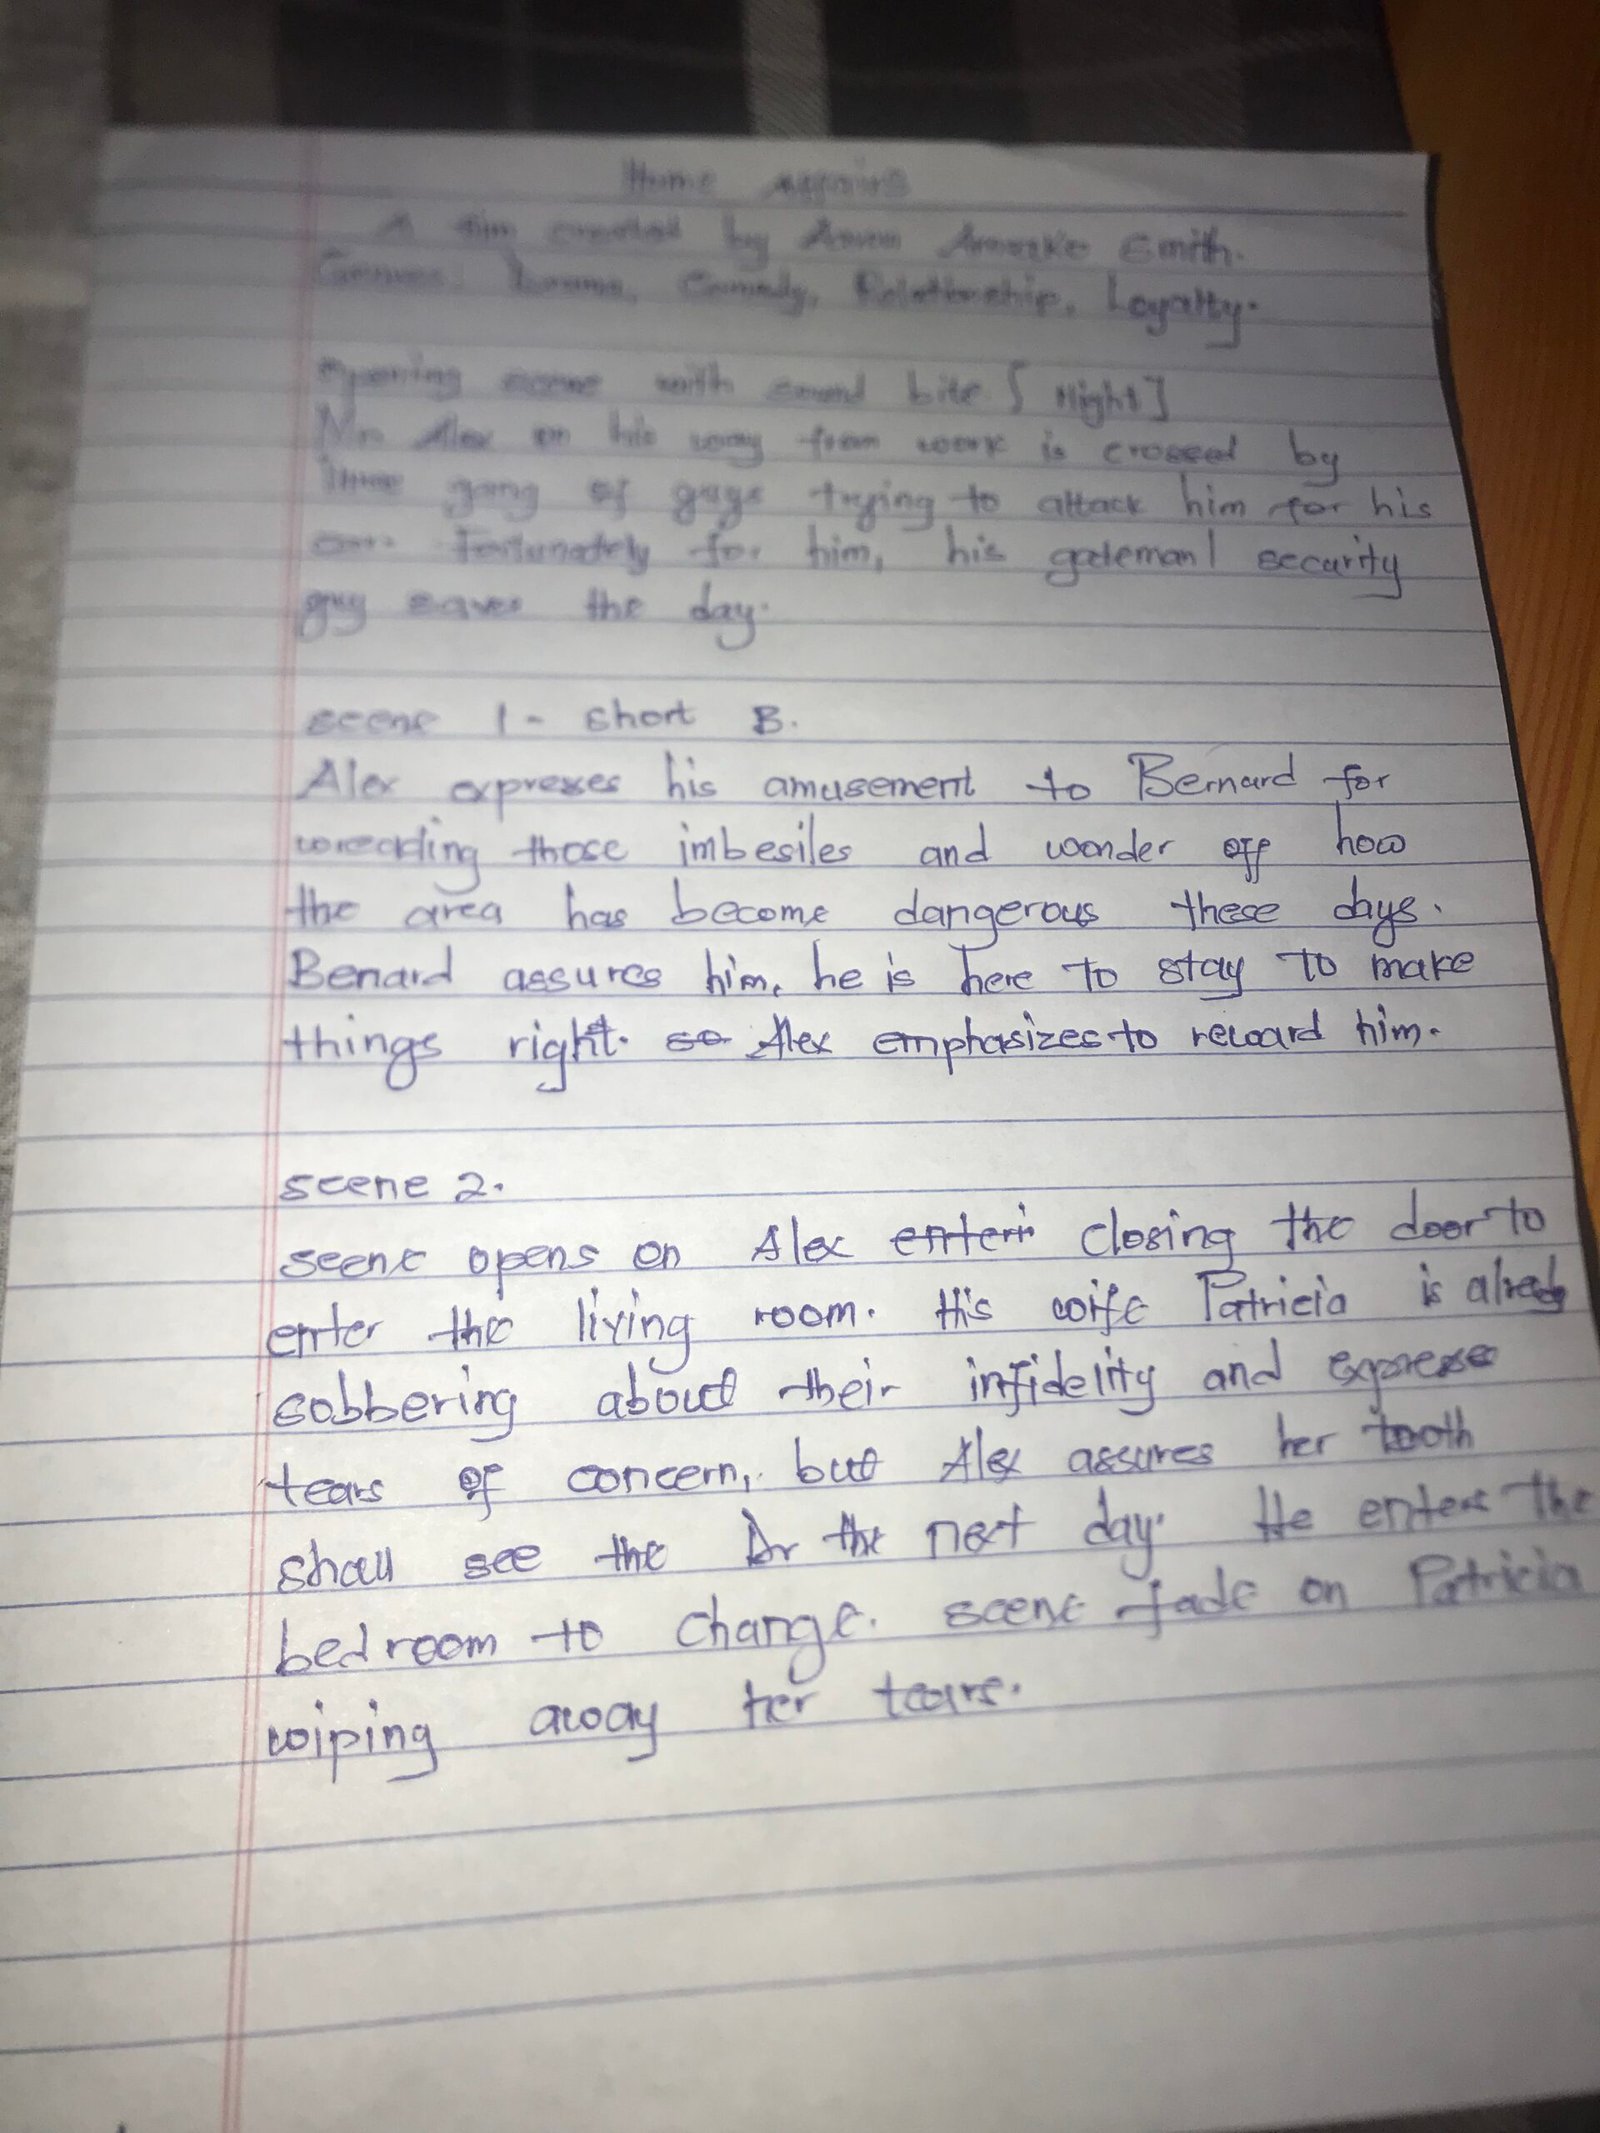 Home Affairs
A film created by Smith.
Genres: Drama, Comedy, Relationship, Loyalty.
Opening scene with sound bite [Night]
Mr Alex on his way from work is crossed by
three gang of guys trying to attack him for his
car. Fortunately for him, his gateman/ security
guy saves the day.
scene 1 - short B.
Alex expresses his amusement to Bernard for
those imbesiles and wonder off how
the area has become dangerous these days.
Benard assures him, he is here to stay to make
things right. so Alex emphasizes to reward him.
scene 2.
scene opens on Alex closing the door to
enter the living room. His wife Patricia is already
sobbering about their infidelity and expresse
tears of concern, but Alex assures her tooth
shall see the Dr the next day. He enters the
bedroom to change. scene fade on Patricia
wiping away her tears.